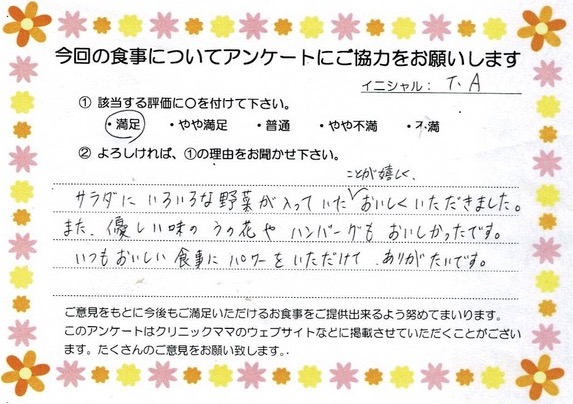 今回の食事についてアンケートにご協力をお願いします
イニシャル： T. A
① 該当する評価に〇を付けて下さい。
・満足 ・やや満足 ・普通 ・やや不満 ・不満
② よろしければ、①の理由をお聞かせ下さい。
ことが嬉しく、
サラダにいろいろな野菜が入っていた おいしくいただきました。
また、優しい味のうの花やハンバーグもおいしかったです。
いつもおいしい食事にパワーをいただけて、ありがたいです。
ご意見をもとに今後もご満足いただけるお食事をご提供出来るよう努めてまいります。
このアンケートはクリニックママのウェブサイトなどに掲載させていただくことがござい
ます。たくさんのご意見をお願い致します。